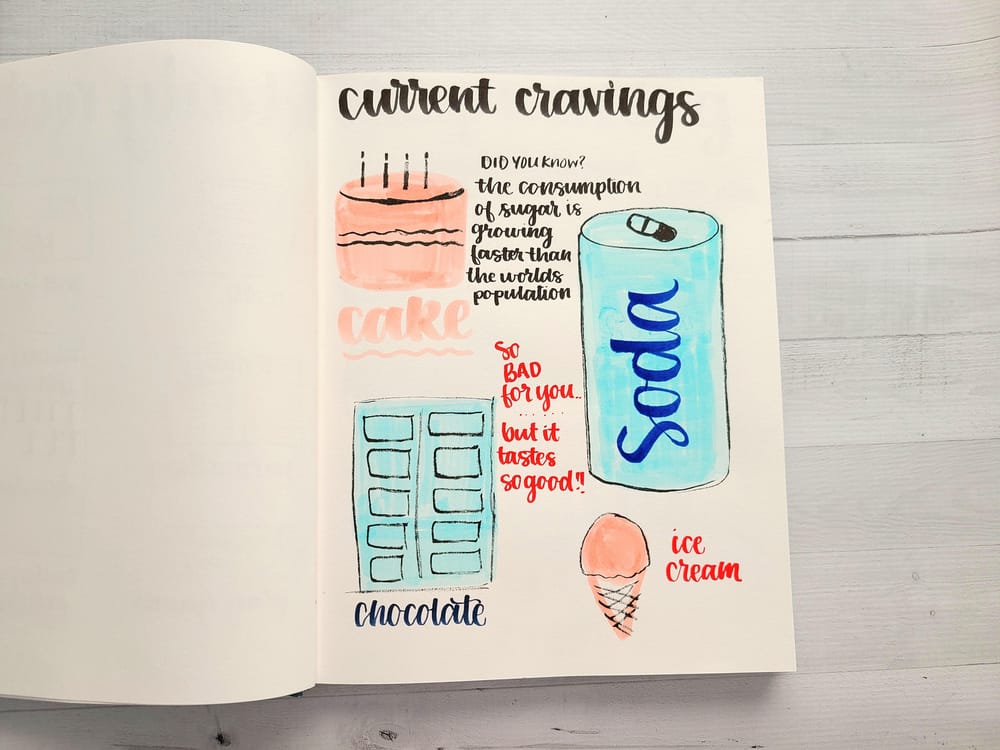 current cravings
DID YOU KNOW?
the consumption
of sugar is
growing
faster than
the worlds
population
cake
Soda
So
BAD
for you..
......
but it
tastes
so good!!
chocolate
ice
cream